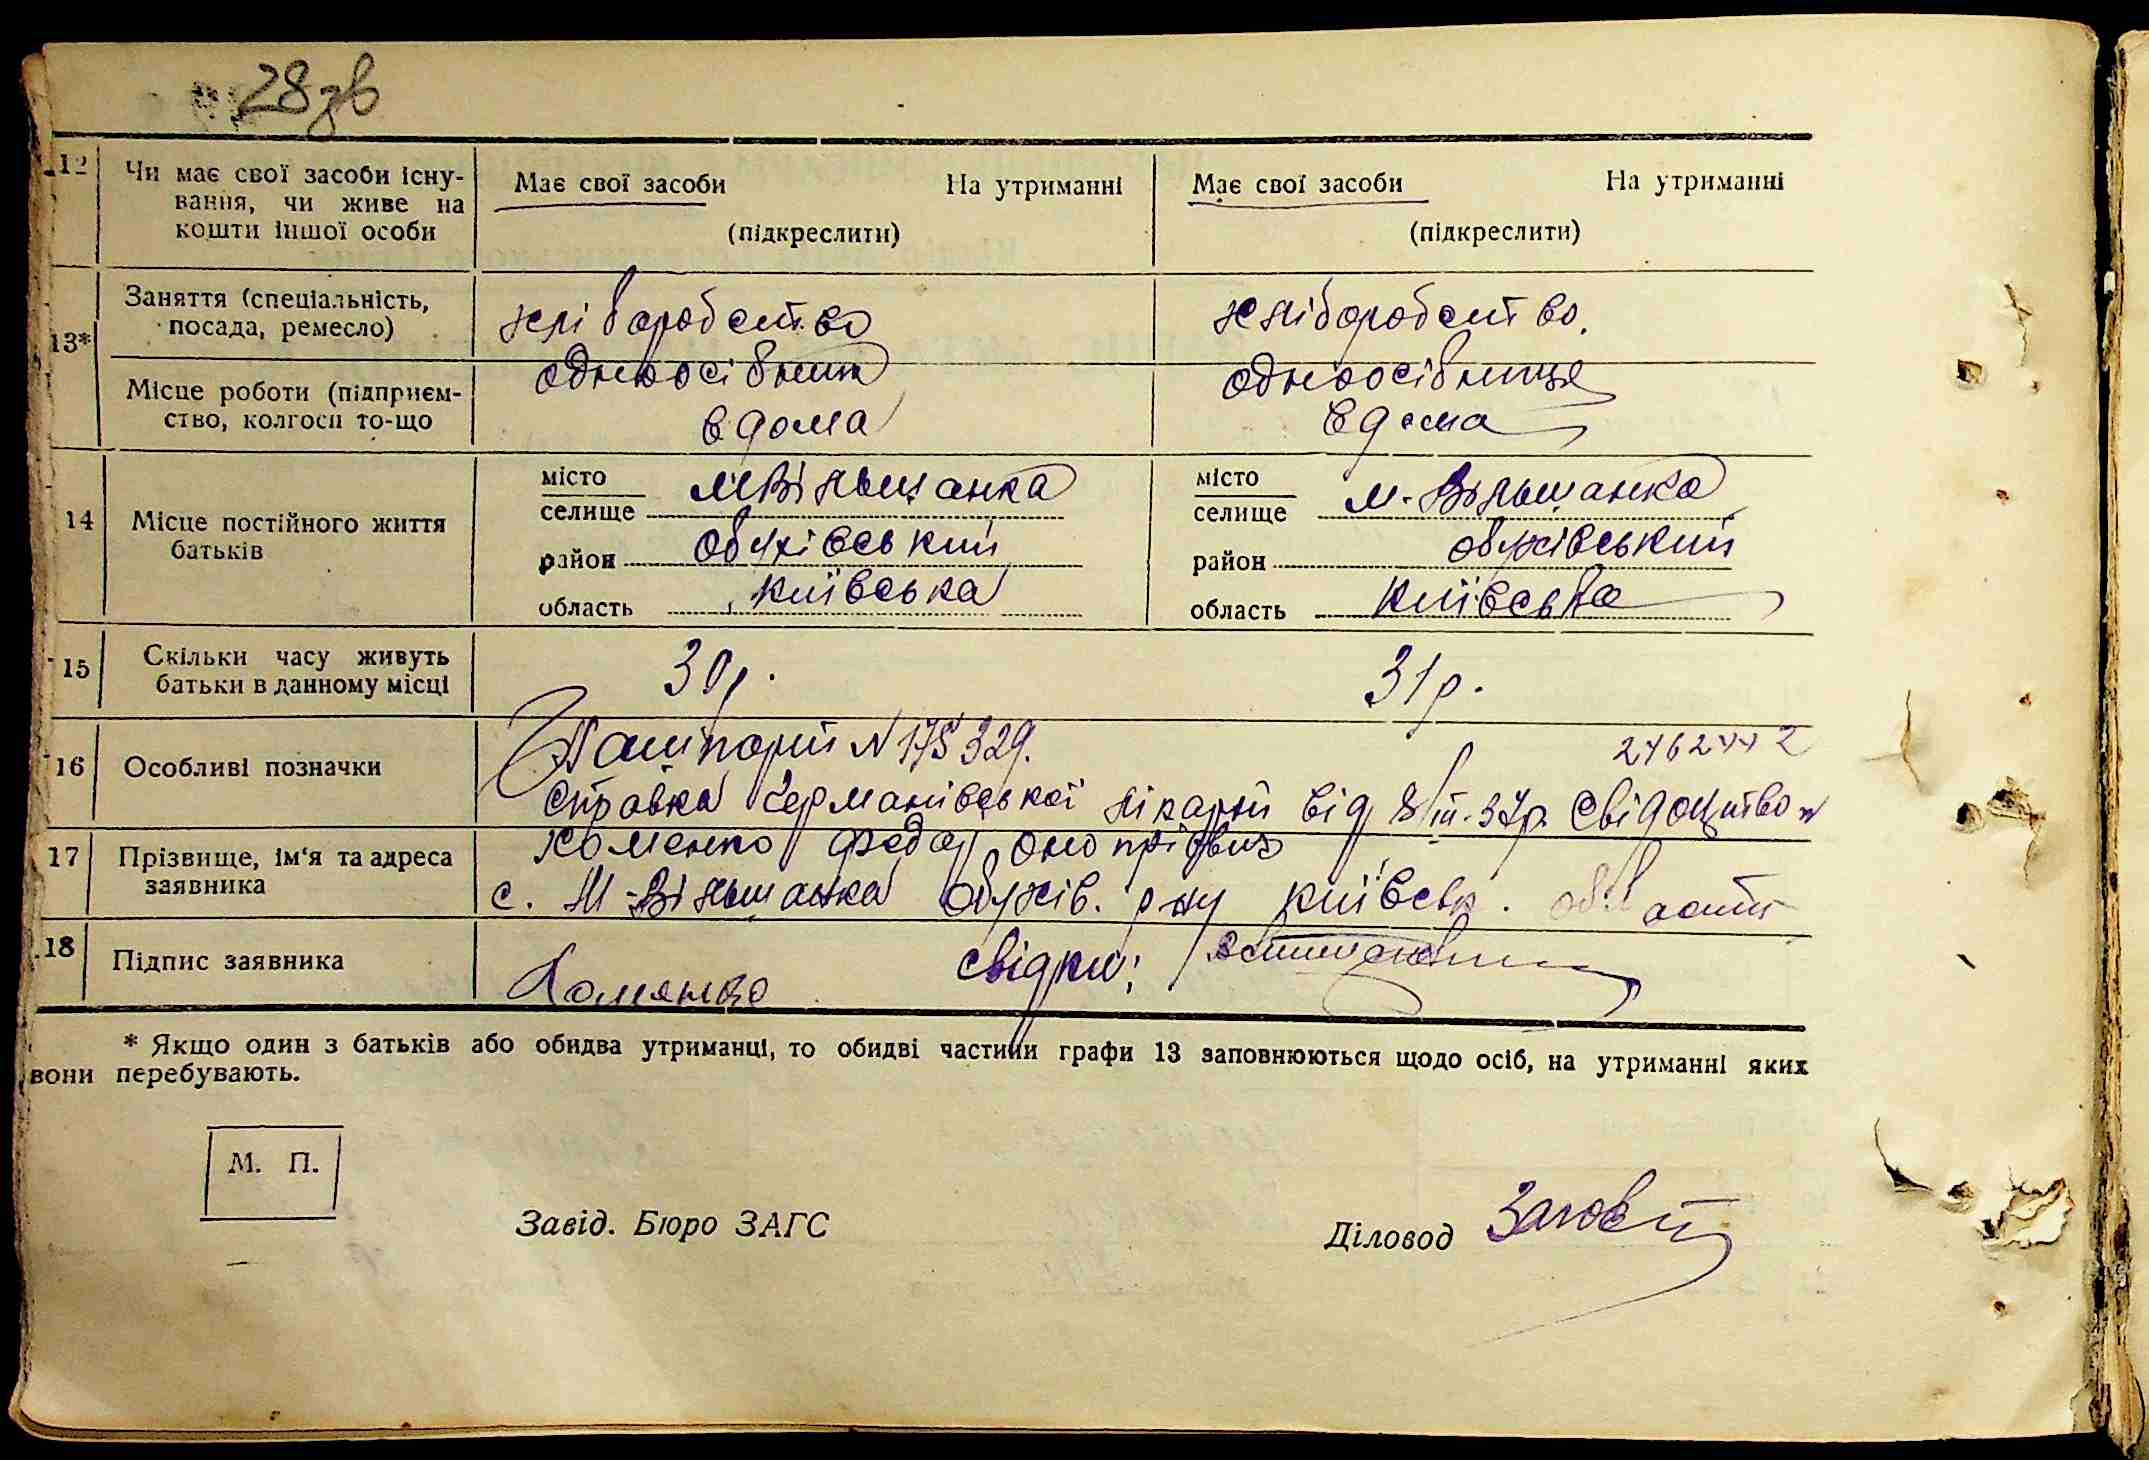 28 зв
12 Чи має свої засоби існу-
вання, чи живе на
кошти іншої особи
Має свої засоби На утриманні
(підкреслити)
Має свої засоби На утриманні
(підкреслити)
13*
Заняття (спеціальність,
посада, ремесло)
хліборобство
одноосібник
хліборобство.
одноосібниця
Місце роботи (підприєм-
ство, колгосп то-що
вдома
вдома
14 Місце постійного життя
батьків
місто
селище М Вільшанка
район Обухівський
область Київська
місто
селище М-Вільшанка
район Обухівський
область Київська
15 Скільки часу живуть
батьки в данному місці
30 р.
31 р.
16 Особливі позначки
Пашпорт N 175329.
2462442
Справка Германівської лікарні від 8/III-37р. Свідоцтво N
17 Прізвище, ім'я та адреса
заявника
Хоменко Федор
с. М-Вільшанка Обухів. р-ну Київськ. області
18 Підпис заявника
Хоменко
свідки:
* Якщо один з батьків або обидва утриманці, то обидві частини графи 13 заповнюються щодо осіб, на утриманні яких
вони перебувають.
М. П.
Завід. Бюро ЗАГС
Діловод